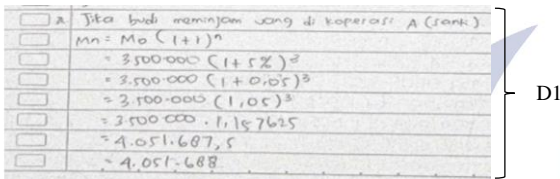 a Jika budi meminjam uang di koperasi A (Santi).
Mn = Mo (1+1)ⁿ
= 3.500.000 (1+5%)³
= 3.500.000 (1+0,05)³
= 3.500.000 (1,05)³
= 3.500.000 . 1,157625
= 4.051.687,5
= 4.051.688
D1